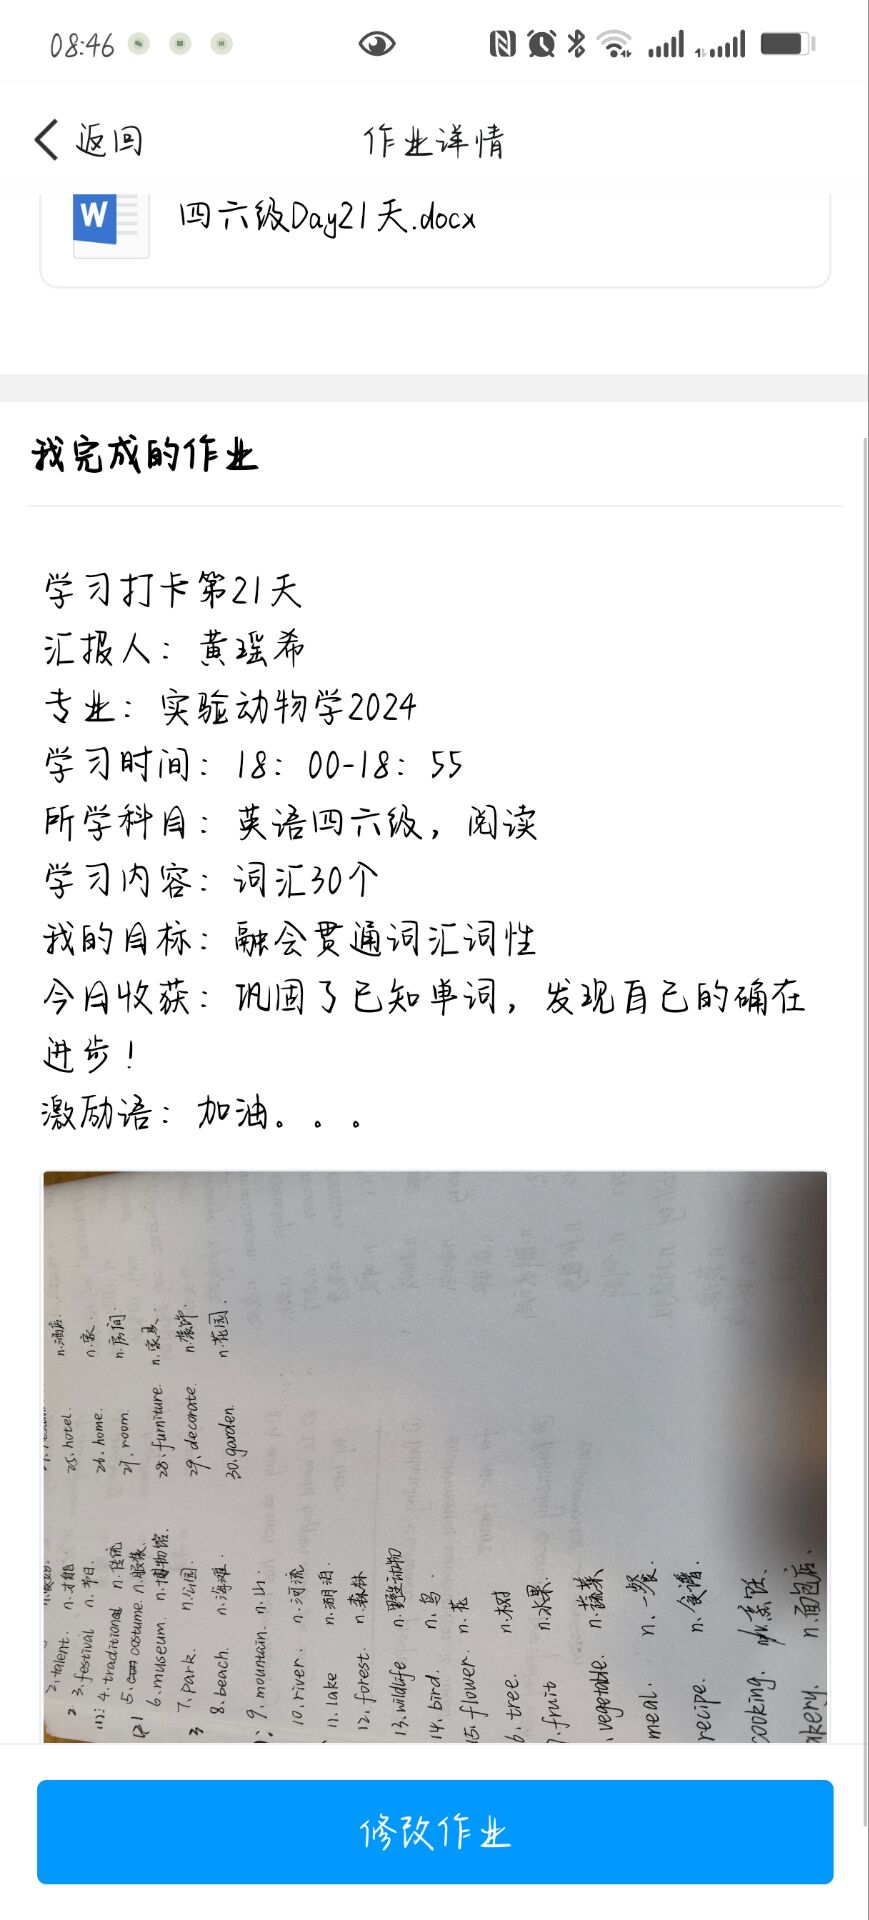 08:46
返回
作业详情
W
四六级Day21天.docx
我完成的作业
学习打卡第21天
汇报人：黄瑶希
专业：实验动物学2024
学习时间：18：00-18：55
所学科目：英语四六级，阅读
学习内容：词汇30个
我的目标：融会贯通词汇词性
今日收获：巩固了已知单词，发现自己的确在
进步！
激励语：加油。。。
2.talent. n.才能
3.festival n.节日.
4.traditional n.传统
5. costume. n.服装.
6.museum n.博物馆.
7.park. n.公园.
8.beach. n.海滩.
9.mountain. n.山.
10.river. n.河流
11.lake n.湖泊.
12.forest. n.森林
13.wildlife n.野生动物
14.bird. n.鸟.
15.flower. n.花
6.tree. n.树
7.fruit n.水果.
.vegetable. n.蔬菜
meal. n.一餐.
recipe. n.食谱.
cooking. n.烹饪.
akery. n.面包店.
25.hotel. n.酒店.
26.home. n.家.
27.room. n.房间.
28.furniture. n.家具.
29.decorate. n.装饰.
30.garden. n.花园.
修改作业